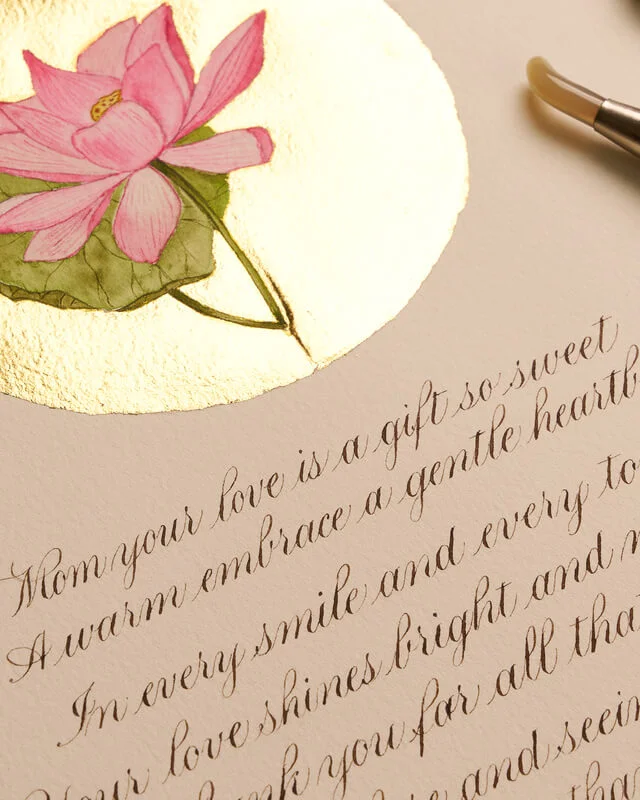 Mom your love is a gift so sweet
A warm embrace a gentle heartb
In every smile and every to
Your love shines bright and
you for all tha
and seein
tha